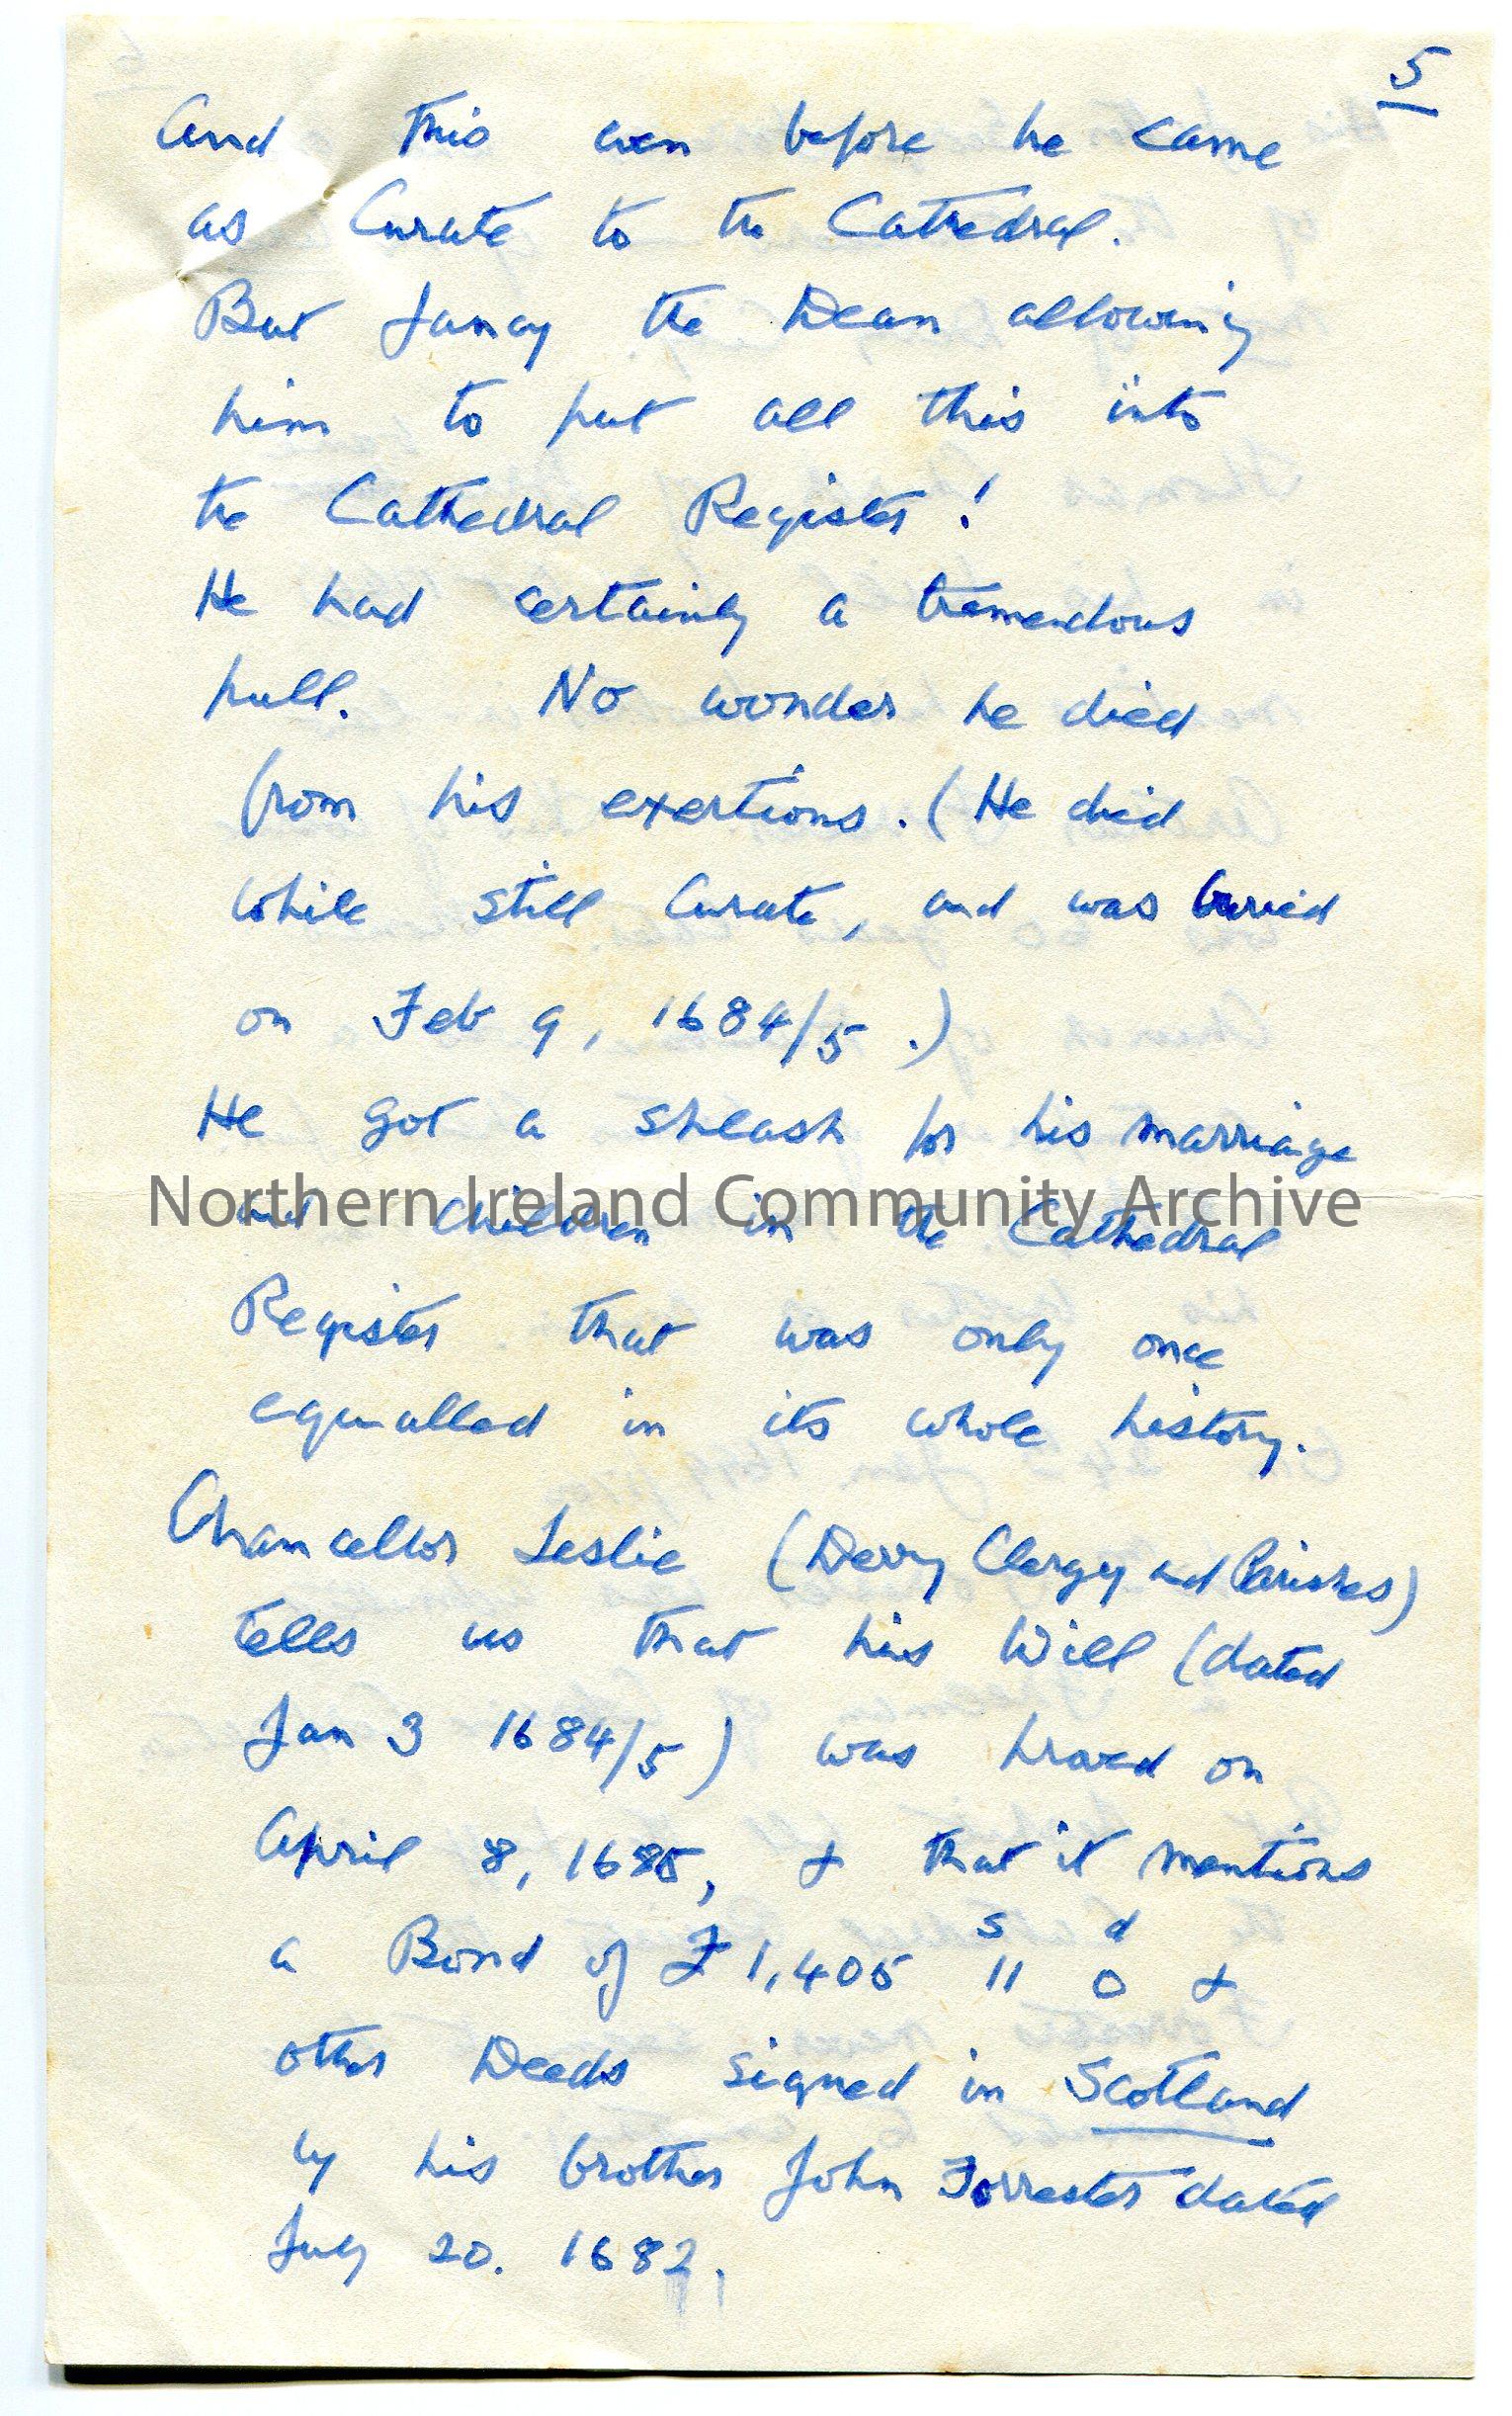 5
And this even before he came
as Curate to the Cathedral.
But fancy the Dean allowing
him to put all this into
the Cathedral Register!
He had certainly a tremendous
pull. No wonder he died
from his exertions. (He died
while still Curate, and was buried
on Feb 9, 1684/5.)
He got a splash for his marriage
Northern Ireland Community Archive
and children in the Cathedral
Register that was only once
equalled in its whole history.
Chancellor Leslie (Derry Clergy and Parishes)
tells us that his Will (dated
Jan 3 1684/5) was proved on
April 8, 1685, & that it mentions
s d
a Bond of £1,405 11 0 &
other Deeds signed in Scotland
by his brother John Forrester dated
July 20. 1682.